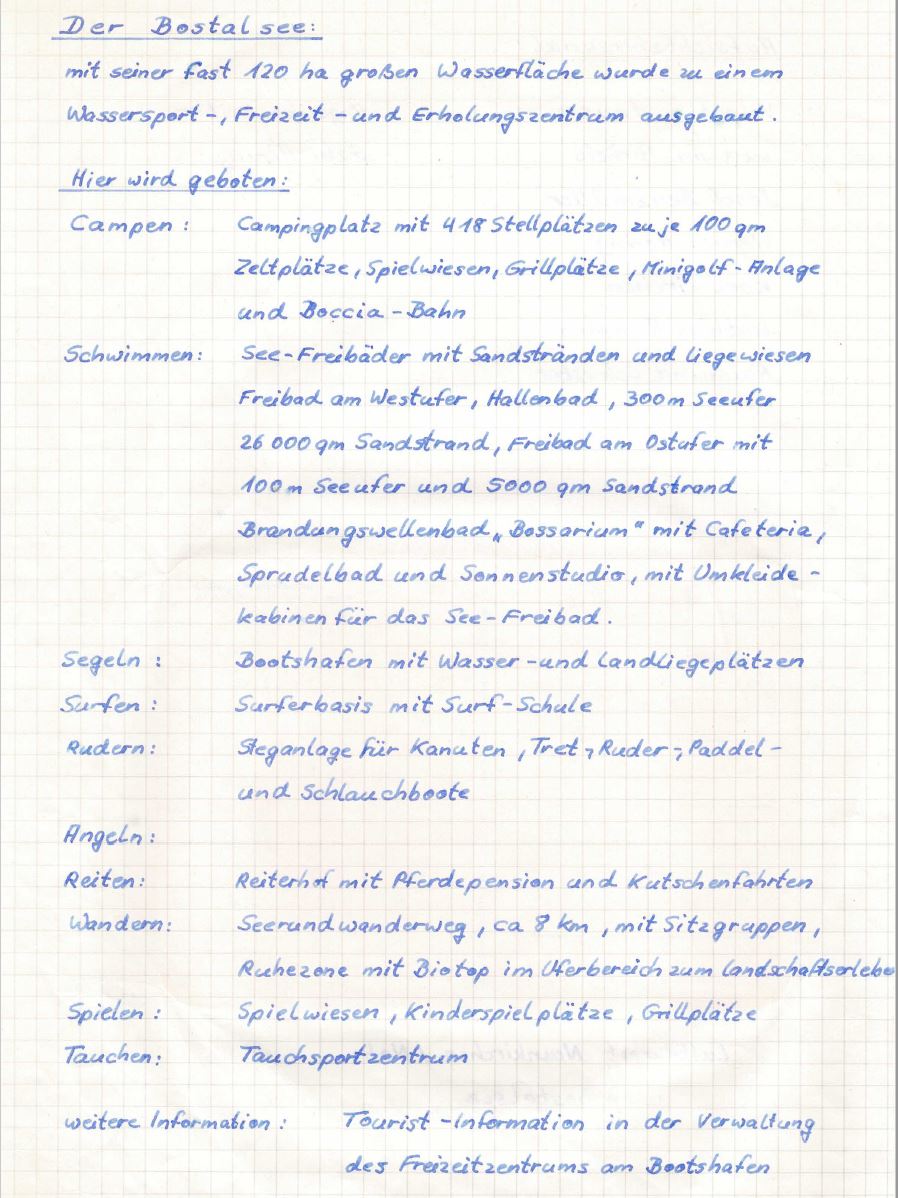 Der Bostalsee:
mit seiner fast 120 ha großen Wasserfläche wurde zu einem
Wassersport-, Freizeit- und Erholungszentrum ausgebaut.
Hier wird geboten:
Campen: Campingplatz mit 418 Stellplätzen zu je 100 qm
Zeltplätze, Spielwiesen, Grillplätze, Minigolf-Anlage
und Boccia-Bahn
Schwimmen: See-Freibäder mit Sandstränden und Liegewiesen
Freibad am Westufer, Hallenbad, 300 m Seeufer
26 000 qm Sandstrand, Freibad am Ostufer mit
100 m Seeufer und 5000 qm Sandstrand
Brandungswellenbad „Bossarium“ mit Cafeteria,
Sprudelbad und Sonnenstudio, mit Umkleide-
kabinen für das See-Freibad.
Segeln: Bootshafen mit Wasser- und Landliegeplätzen
Surfen: Surferbasis mit Surf-Schule
Rudern: Steganlage für Kanuten, Tret-, Ruder-, Paddel-
und Schlauchboote
Angeln:
Reiten: Reiterhof mit Pferdepension und Kutschenfahrten
Wandern: Seerundwanderweg, ca 8 km, mit Sitzgruppen,
Ruhezone mit Biotop im Uferbereich zum Landschaftserlebe
Spielen: Spielwiesen, Kinderspielplätze, Grillplätze
Tauchen: Tauchsportzentrum
weitere Information: Tourist-Information in der Verwaltung
des Freizeitzentrums am Bootshafen